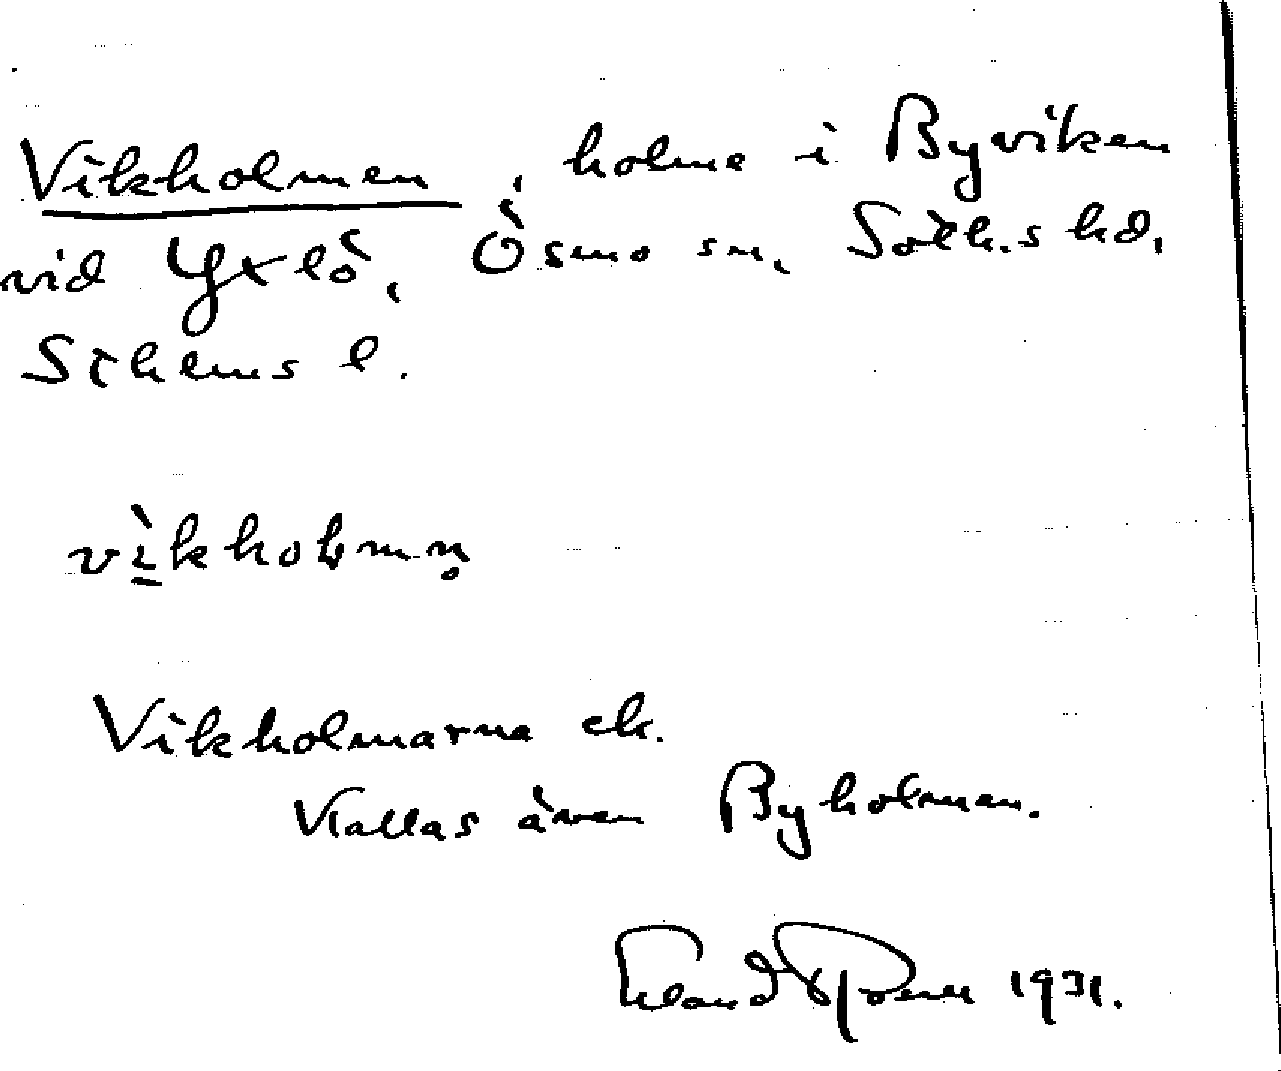 Vikholmen, holme i Byviken
vid Yxlö, Ösmo sn, Soth.s hd.
Sthlms l.
vìkholmn̥
Vikholmarna ek.
Kallas även Byholmen.
Erland Rosell 1931.